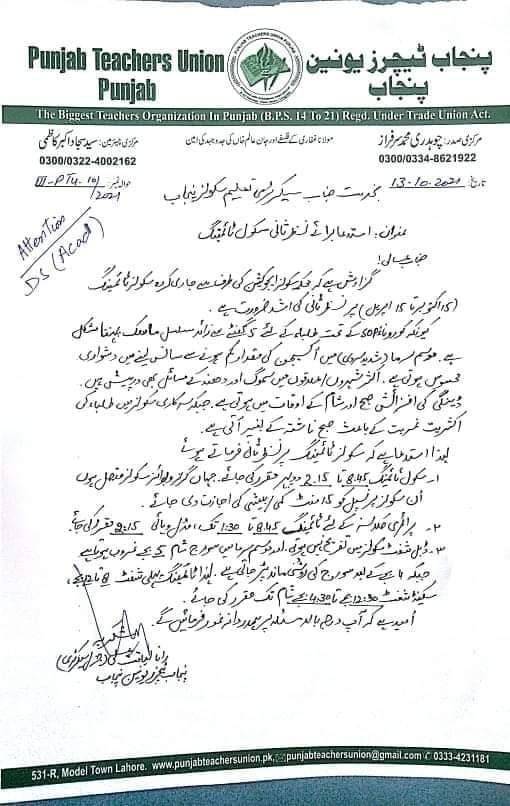 Punjab Teachers Union
Punjab
پنجاب ٹیچرز یونین
پنجاب
PUNJAB TEACHERS UNION PUNJAB
The Biggest Teachers Organization In Punjab (B.P.S. 14 To 21) Regd. Under Trade Union Act.
مرکزی صدر: چوہدری محمد سرفراز
0300/0334-8621922
مولانا غفاری کے فلسفے اور جان عالم خاں کی جدوجہد کی امین
مرکزی چیئرمین: سید سجاد اکبر کاظمی
0300/0322-4002162
تاریخ: 13-10-2021
حوالہ نمبر: III-PTU-101/2021
Attention
DS (Acad)
بخدمت جناب سیکرٹری تعلیم سکولز پنجاب
عنوان: استدعا برائے نظرثانی سکول ٹائمینگ
جناب عالی!
گزارش ہے کہ محکمہ سکولز ایجوکیشن کی طرف سے جاری کردہ سکولز ٹائمینگ
(15 اکتوبر تا 15 اپریل) پر نظرثانی کی اشد ضرورت ہے۔
کیونکہ کورونا SOPs کے تحت طلباء کے لئے 5 گھنٹے سے زائد مسلسل ماسک پہننا مشکل
ہے۔ موسم سرما (شدید سردی) میں آکسیجن کی مقدار کم ہونے سے سانس لینے میں دشواری
محسوس ہوتی ہے۔ اکثر شہروں/علاقوں میں سموگ اور دھند کے مسائل بھی درپیش ہیں۔
ڈینگی کی افزائش صبح اور شام کے اوقات میں ہوتی ہے۔ جبکہ سرکاری سکولز میں طلباء کی
اکثریت غربت کے باعث صبح ناشتہ کے بغیر آتی ہے۔
لہذا استدعا ہے کہ سکولز ٹائمینگ پر نظرثانی فرماتے ہوئے
1۔ سکول ٹائمینگ 8.45 تا 2.15 دوپہر مقرر کی جائے۔ جہاں گرلز و بوائز سکولز متصل ہوں
اُن سکولز پرنسپل کو 15 منٹ کمی/بیشی کی اجازت دی جائے۔
2۔ پرائمری کلاسز کے لئے ٹائمینگ 8:45 تا 1:30 تک، مقرر کی جائے۔
3۔ ڈبل شفٹ سکولز میں تفریح نہیں ہوتی۔ اور موسم سرما میں سورج شام 5 بجے غروب ہوتا ہے
جبکہ 4 بجے کے بعد سورج کی روشنی ماند پڑ جاتی ہے۔ لہذا ٹائمینگ پہلی شفٹ 8 تا 12 بجے،
سیکنڈ شفٹ 12:30 بجے تا 4:30 بجے شام تک مقرر کی جائے۔
امید ہے کہ آپ درج بالا مسئلہ پر ہمدردانہ غور فرمائیں گے۔
رانا لیاقت علی (جنرل سیکرٹری)
پنجاب ٹیچرز یونین پنجاب
531-R, Model Town Lahore. www.punjabteachersunion.pk, punjabteachersunion@gmail.com 0333-4231181